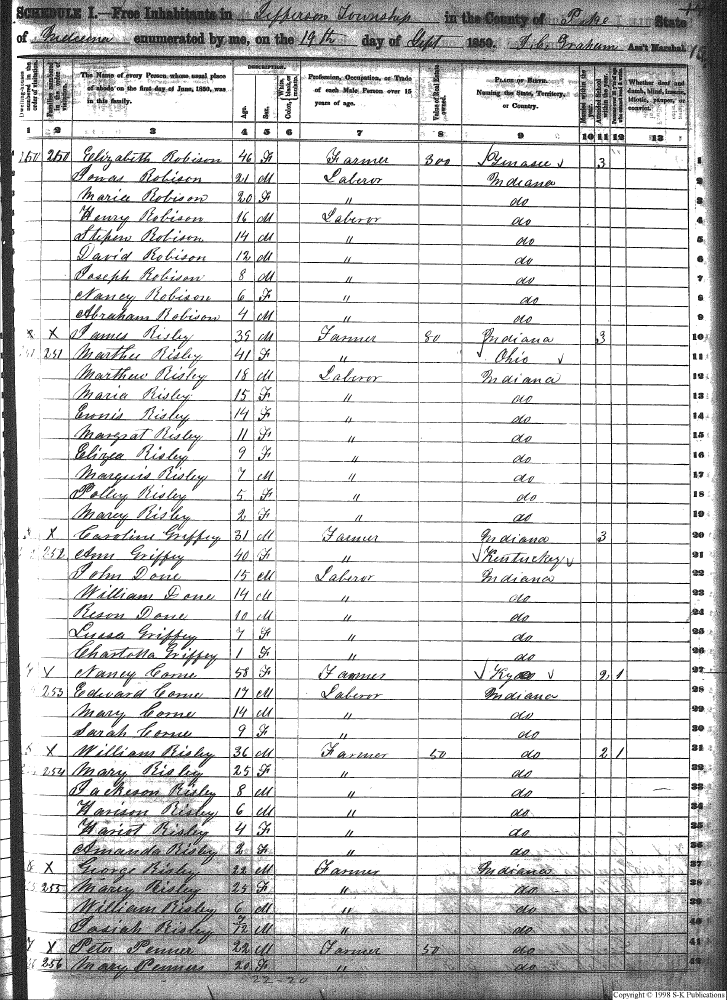 SCHEDULE I.—Free Inhabitants in Jefferson Township in the County of Pike State
of Indiana enumerated by me, on the 19th day of Sept 1850. J. C. Graham Ass't Marshal.
Dwelling-houses numbered in the order of visitation.
Families numbered in the order of visitation.
The Name of every Person whose usual place of abode on the first day of June, 1850, was in this family.
DESCRIPTION.
Age.
Sex.
White, black, or mulatto.
Color,
Profession, Occupation, or Trade of each Male Person over 15 years of age.
Value of Real Estate owned.
PLACE OF BIRTH. Naming the State, Territory, or Country.
Married within the year.
Attended School
Whether deaf and dumb, blind, insane, idiotic, pauper, or convict.
1 2 3 4 5 6 7 8 9 10 11 12 13
250 250 Elizabeth Robison 46 F Farmer 300 3 1
Jonas Robison 21 M Laberor Indiana 2
Maria Robison 20 F " do 3
Henry Robison 16 M Laberor do 4
Stepen Robison 14 M " do 5
David Robison 12 M " do 6
Joseph Robison 8 M " do 7
Nancy Robison 6 F " do 8
Abraham Robison 4 M " do 9
X X James Risley 35 M Farmer 80 Indiana 3 10
251 Marthee Risley 41 F " Ohio 11
Marthew Risley 18 M Laberor Indiana 12
Maria Risley 15 F " do 13
Risley 14 F " do 14
Margrat Risley 11 F " do 15
Elizea Risley 9 F " do 16
Marquis Risley 7 M " do 17
Polley Risley 5 F " do 18
Marey Risley 2 F " do 19
X Caroline Griffey 31 M Farmer Indiana 3 20
252 Ann Griffey 40 F " Kentuckey 21
John Done 15 M Laberor Indiana 22
William Done 14 M " do 23
Reson Done 10 M " do 24
Lussa Griffey 7 F " do 25
Charlotta Griffey 1 F " do 26
X Nancy Corne 58 F Farmer Ky 2 1 27
253 Edward Corne 17 M Laberor Indiana 28
Mary Corne 14 M " do 29
Sarah Corne 9 F " do 30
X William Risley 36 M Farmer 50 do 2 1 31
254 Mary Risley 25 F " do 32
Jackeson Risley 8 M " do 33
Harison Risley 6 M " do 34
Hariot Risley 4 F " do 35
Amanda Risley 2 F " do 36
X George Risley 22 M Farmer Indiana 37
255 Marey Risley 25 F " do 38
William Risley 6 M " do 39
Josiah Risley M " do 40
X Peter Penner 22 M Farmer 50 do 41
256 Mary Penners 20 F " do 42
22-20
Copyright © 1998 S-K Publications